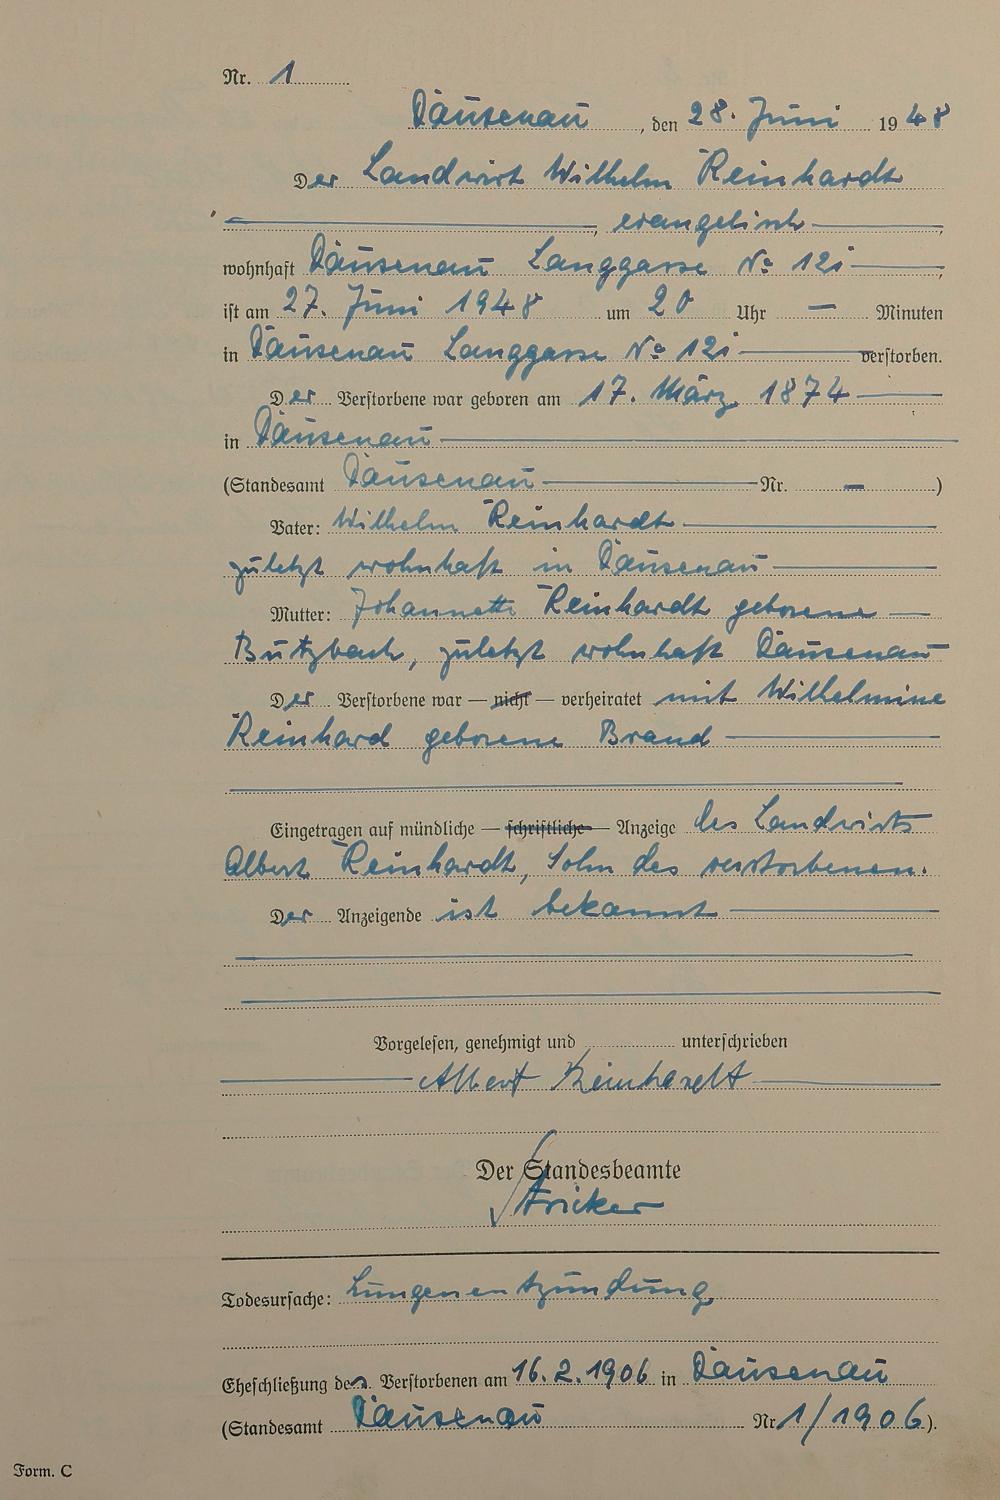 Nr. 1
Dausenau, den 28. Juni 1948
Der Landwirt Wilhelm Reinhardt
, evangelisch ,
wohnhaft Dausenau Langgasse No 121 ,
ist am 27. Juni 1948 um 20 Uhr — Minuten
in Dausenau Langgasse No 121 verstorben.
Der Verstorbene war geboren am 17. März 1874
in Dausenau
(Standesamt Dausenau Nr. — )
Vater: Wilhelm Reinhardt
zuletzt wohnhaft in Dausenau
Mutter: Johannette Reinhardt geborene
Butzbach, zuletzt wohnhaft Dausenau
Der Verstorbene war — nicht — verheiratet mit Wilhelmine
Reinhard geborene Brand
Eingetragen auf mündliche — schriftliche — Anzeige des Landwirts
Albert Reinhardt, Sohn des verstorbenen.
Der Anzeigende ist bekannt
Vorgelesen, genehmigt und unterschrieben
Albert Reinhardt
Der Standesbeamte
Stricker
Todesursache: Lungenentzündung
Eheschließung des Verstorbenen am 16.2.1906 in Dausenau
(Standesamt Dausenau Nr 1/1906).
Form. C